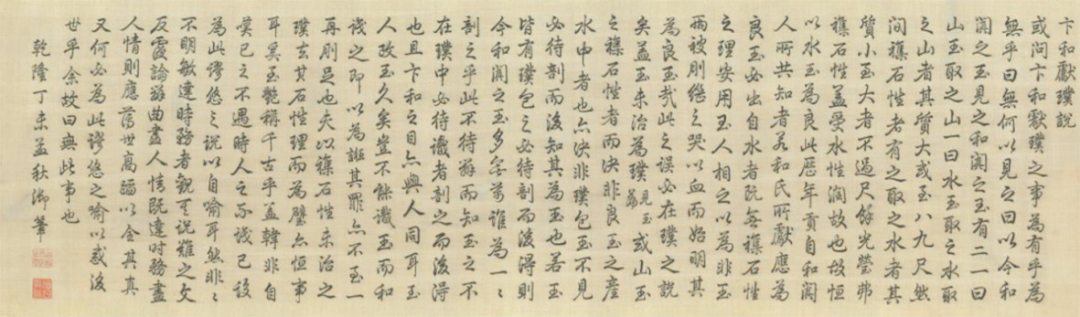 卞和獻璞說
或問卞和獻璞之事為有乎為
無乎曰無何以見之曰以今和
闐之玉見之和闐之玉有二一曰
山玉取之山一曰水玉取之水取
之山者其質大或至八九尺然
間襍石性者有之取之水者其
質小至大者不過尺餘光瑩弗
襍石性蓋瑩水性潤故也故恒
以水玉為良此歷年貢自和闐
人所共知者若和氏所獻應為
良玉必出自水者既無襍石性
之理安用玉人相之以為非玉
兩被刖繼之哭以血而始明其
為良玉哉此之誤必在璞之說
矣蓋玉未治為璞見玉篇或山玉
之襍石性者而決非良玉之產
水中者也亦決非璞包玉不見
必待剖而後知其為玉也若玉
皆有璞包之必待剖而後得則
今和闐之玉多矣誰為一〻
剖之乎此不待辯而知玉之不
在璞中必待識者剖之而後得
也且卞和之目亦與人同耳玉
人攻玉久矣豈不能識玉而和
識之即以為誑其罪亦不至一
再刖也夫以襍石性未治之
璞去其石性理而為璧亦恒事
耳奚至艷稱千古乎蓋韓非自
嘆己之不遇時人之不識己設
為此謬悠之說以自喻耳然非〻
不明敏達時務者觀其說難之文
反覆論辯曲盡人情既達時務盡
人情則應世高蹈以全其真
又何必為此謬悠之喻以惑後
世乎余故曰無此事也
乾隆丁未孟秋御筆